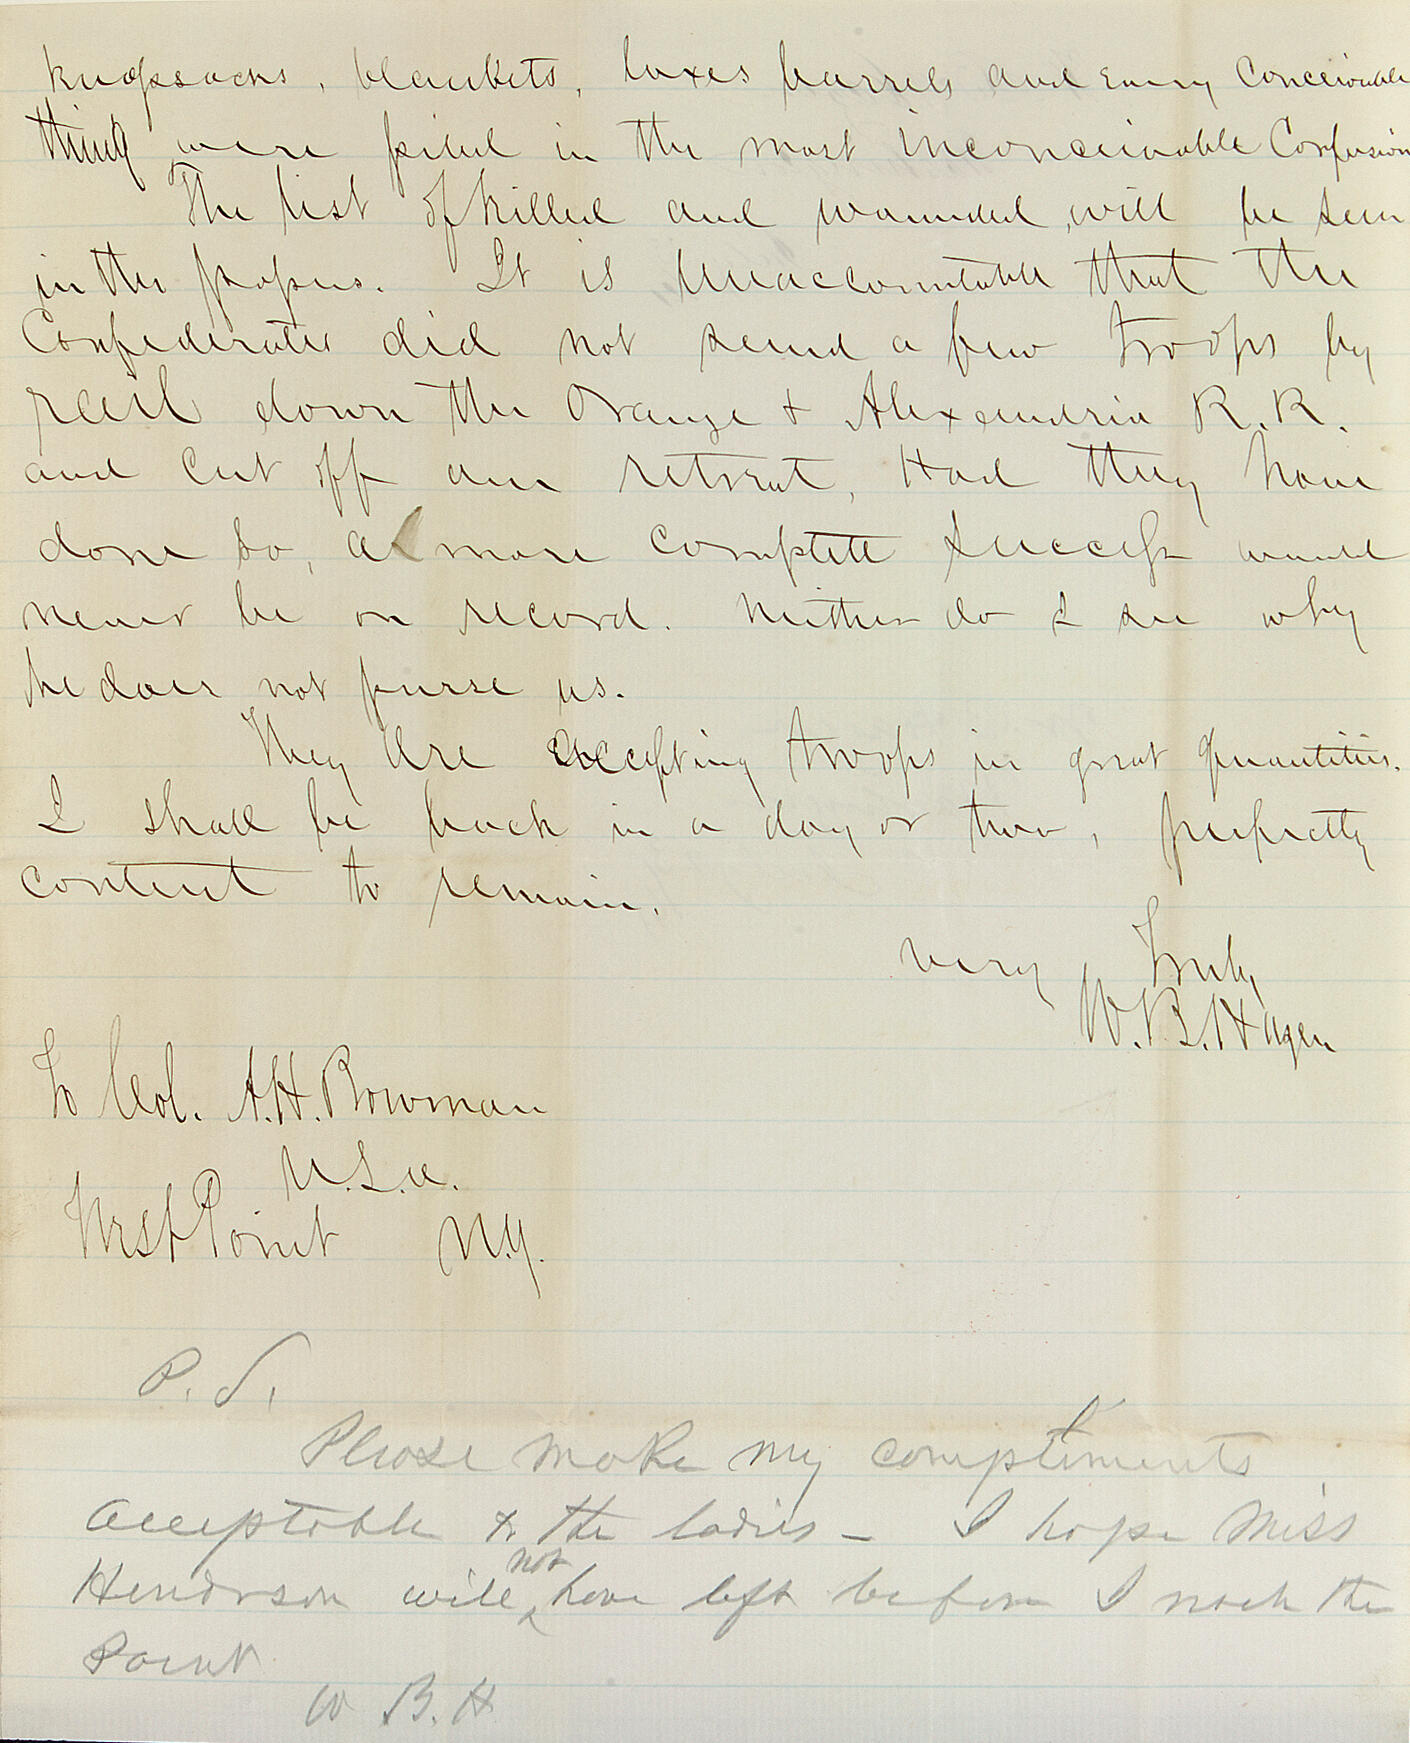 knapsacks, blankets, boxes barrels and every conceivable
thing were piled in the most inconceivable confusion
The list of killed and wounded, will be seen
in the papers. It is unaccountable that the
Confederates did not send a few troops by
rail down the Orange & Alexandria R.R.
and cut off our retreat, Had they have
done so, a more complete success would
never be on record. Neither do I see why
he does not purse us.
They are accepting troops in great quantities.
I shall be back in a day or two, perfectly
content to remain.
Very Truly
W.B. Hazen
To Col. A.H. Bowman
U.S.A.
West Point N.Y.
P.S.
Please make my compliments
acceptable to the ladies – I hope Miss
Henderson will not have left before I reach the
Point
W B. H